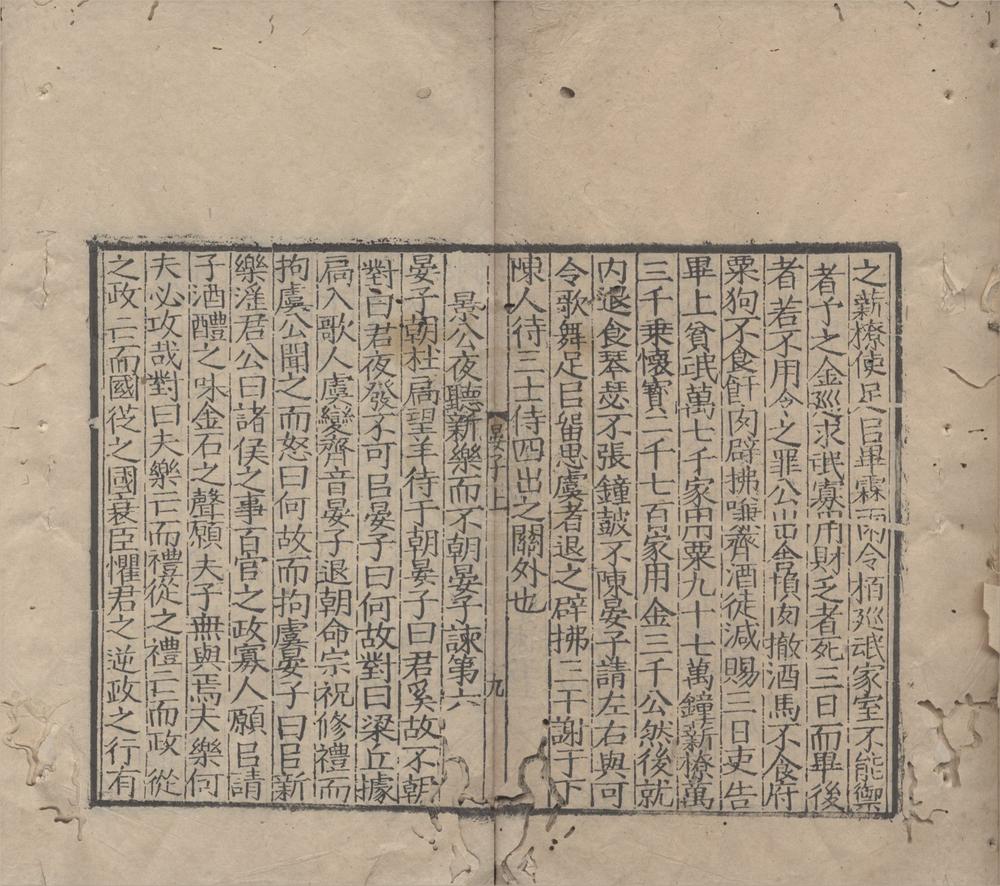 之薪橑使足㠯畢霖雨令栢廵氓家室不能禦
者予之金廵求氓寡用財乏者死三日而畢後
者若不用令之罪公出舍損肉撤酒馬不食府
粟狗不食飦肉辟拂嗛齊酒徒減賜三日吏告
畢上貧氓萬七千家用粟九十七萬鐘薪橑萬
三千乗懷寶二千七百家用金三千公然後就
内退食琴瑟不張鐘鼓不陳晏子請左右與可
令歌舞足㠯留思虞者退之辟拂三千謝于下
陳人待三士侍四出之關外也
晏子上
九
景公夜聽新樂而不朝晏子諫第六
晏子朝杜扃望羊待于朝晏子曰君奚故不朝
對曰君夜發不可㠯晏子曰何故對曰梁丘據
扃入歌人虞變齊音晏子退朝命宗祝修禮而
拘虞公聞之而怒曰何故而拘虞晏子曰㠯新
樂淫君公曰諸侯之事百官之政寡人願㠯請
子酒醴之味金石之聲願夫子無與焉夫樂何
夫必攻哉對曰夫樂亡而禮從之禮亡而政從
之政亡而國從之國衰臣懼君之逆政之行有